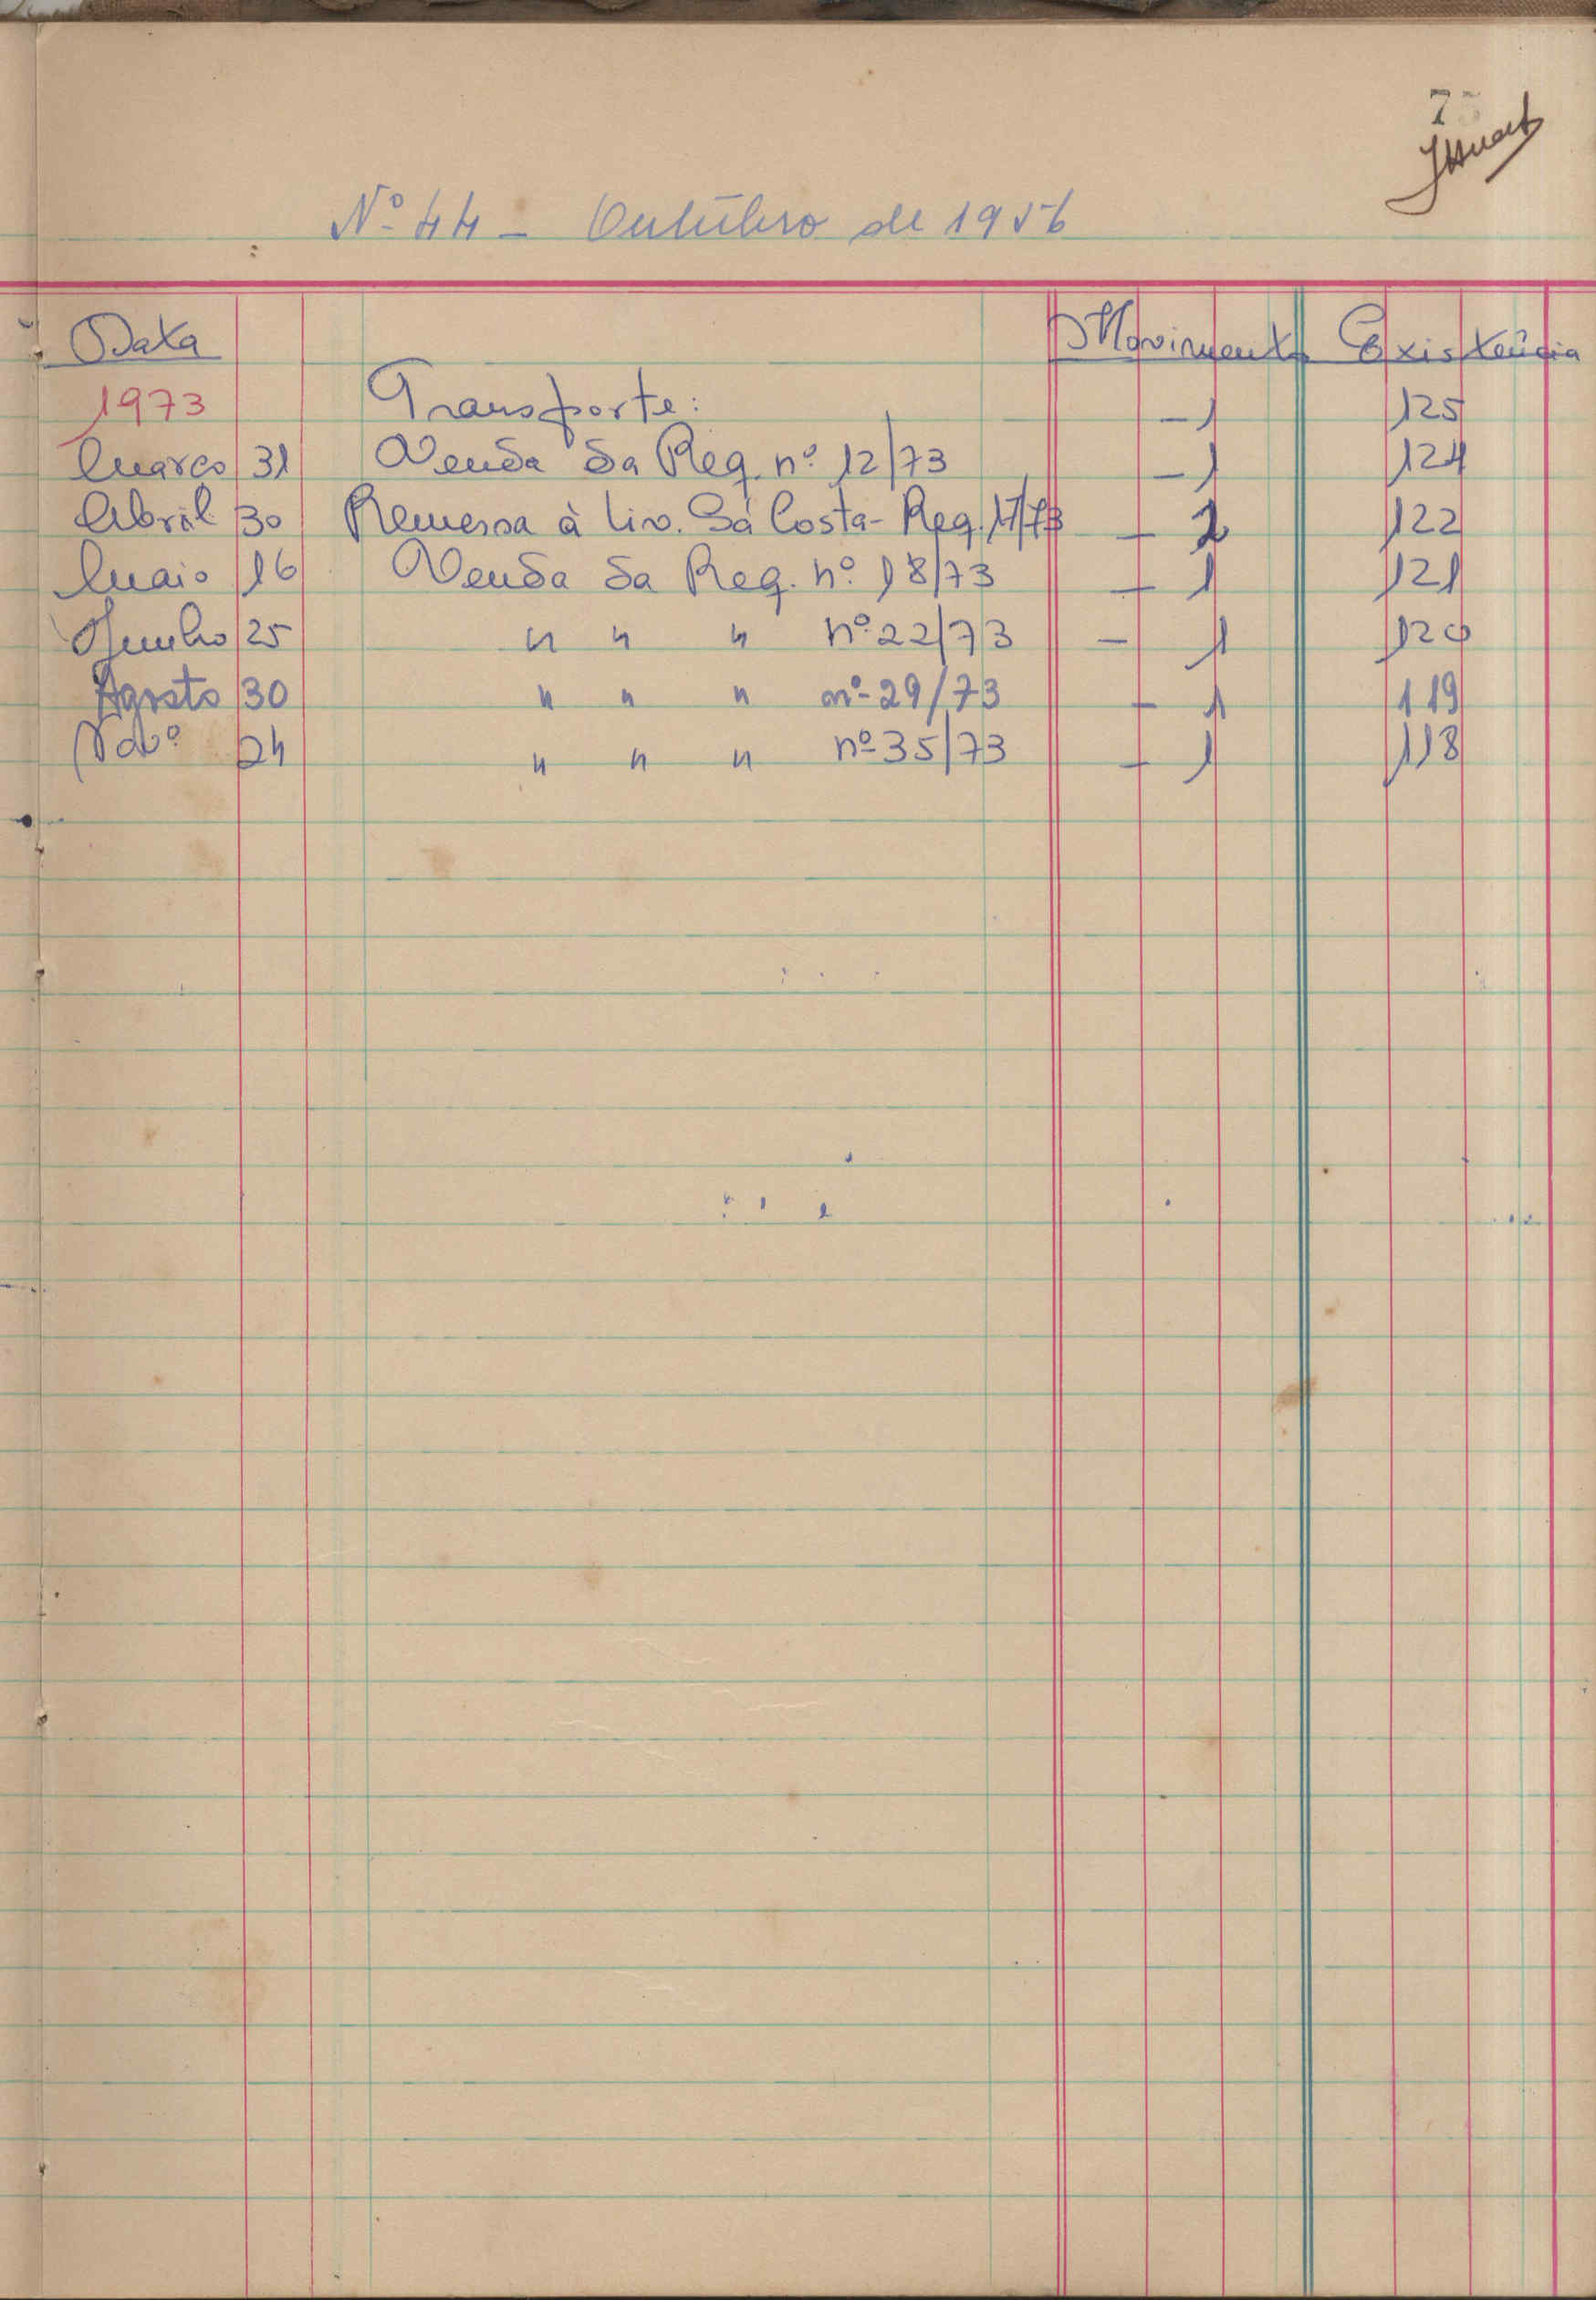 7
Nº 44 - Outúbro de 1956
Data Movimento Existência
1973 Transporte: - 1 125
Março 31 Venda da Req. nº 12/73 - 1 124
Abril 30 Remessa à Liv. Sá Costa - Req. 17/73 - 2 122
Maio 16 Venda da Req. nº 18/73 - 1 121
Junho 25 " " " nº 22/73 - 1 120
Agosto 30 " " " nº 29/73 - 1 119
Novº 24 " " " nº 35/73 - 1 118